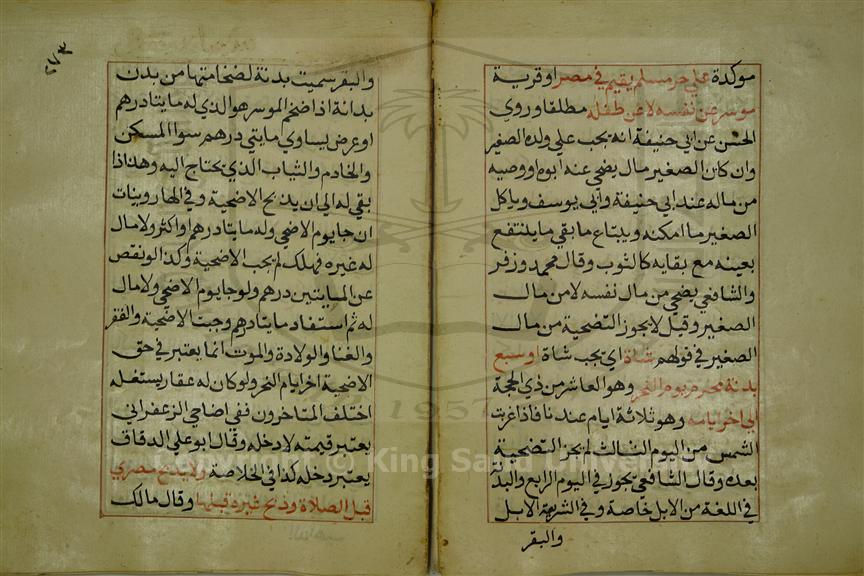 موكدة علي حر مسلم يقيم في مصر او قرية
موسر عن نفسه لا عن طفله مطلقا وروي
الحسن عن ابي حنيفة انه يجب علي ولده الصغير
وان كان الصغير مال يضحي عنه ابوه او وصيه
من ماله عند ابي حنيفة وابي يوسف وياكل
الصغير ما امكنه ويبتاع ما بقي ما ينتفع
بعينه مع بقايه كالثوب وقال محمد وزفر
والشافعي يضحي من مال نفسه لا من مال
الصغير وقيل لا يجوز التضحية من مال
الصغير في قولهم شاة اي يجب شاة او سبع
بدنة فجر يوم النحر وهو العاشر من ذي الحجة
الي اخر ايامه وهو ثلاثة ايام عندنا فاذا غربت
الشمس من اليوم الثالث لم يجز التضحية
بعده وقال الشافعي يجوز في اليوم الرابع والبدنة
في اللغة من الابل خاصة وفي الشريعة الابل
والبقر
٢٧٣
والبقر سميت بدنة لضخامتها من بدن
بدانة اذا ضخم الموسر هو الذي له مايتا درهم
او عرض يساوي مايتي درهم سوا المسكن
والخادم والثياب الذي يحتاج اليه وهذا اذا
بقي له الي ان يذبح الاضحية وفي الهارونيات
ان جا يوم الاضحي وله مايتا درهم او اكثر ولا مال
له غيره فهلك لم يجب الاضحية وكذا لو نقص
عن المايتين درهم ولو جا يوم الاضحي ولا مال
له ثم استفاد مايتا درهم وجبت الاضحية والفقر
والغنا والولادة والموت انما يعتبر في حق
الاضحية اخر ايام النحر ولو كان له عقار يستغله
اختلف المتاخرون ففي اضاحي الزعفراني
يعتبر قيمته لا دخله وقال ابو علي الدقاق
يعتبر دخله كذا في الخلاصة ولا يذبح مصري
قبل الصلاة وذبح غيره قبلها وقال مالك
© King Saud University
1957